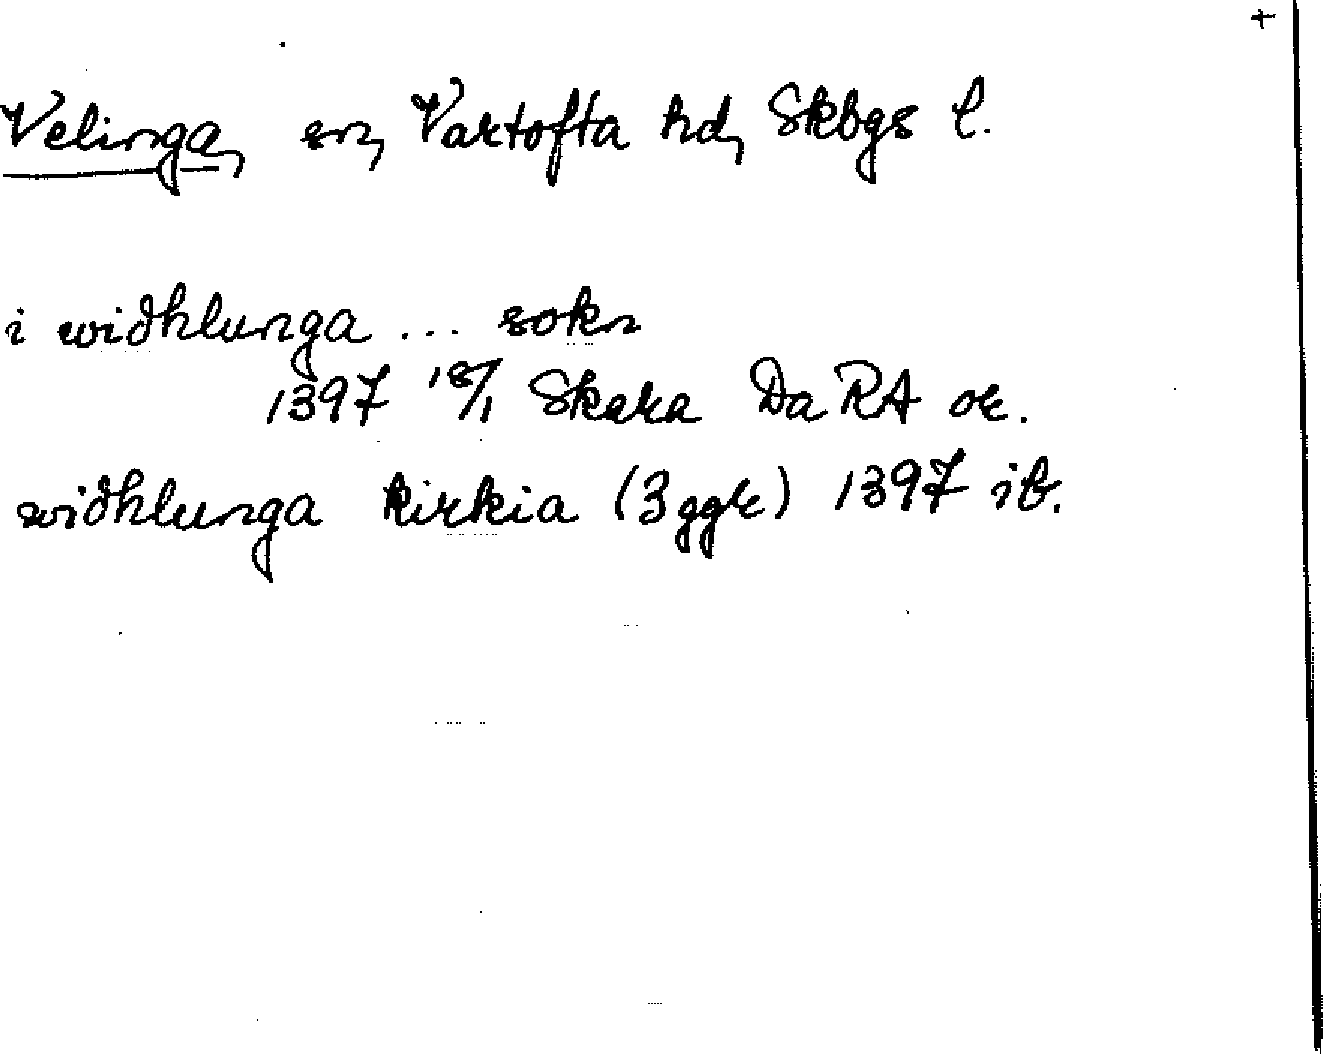 +
Velinga, sn, Vartofta hd, Skbgs l.
i widhlunga ... sokn
1397 18/1 Skara Da RA or.
widhlunga kirkia (3 ggr) 1397 ib.